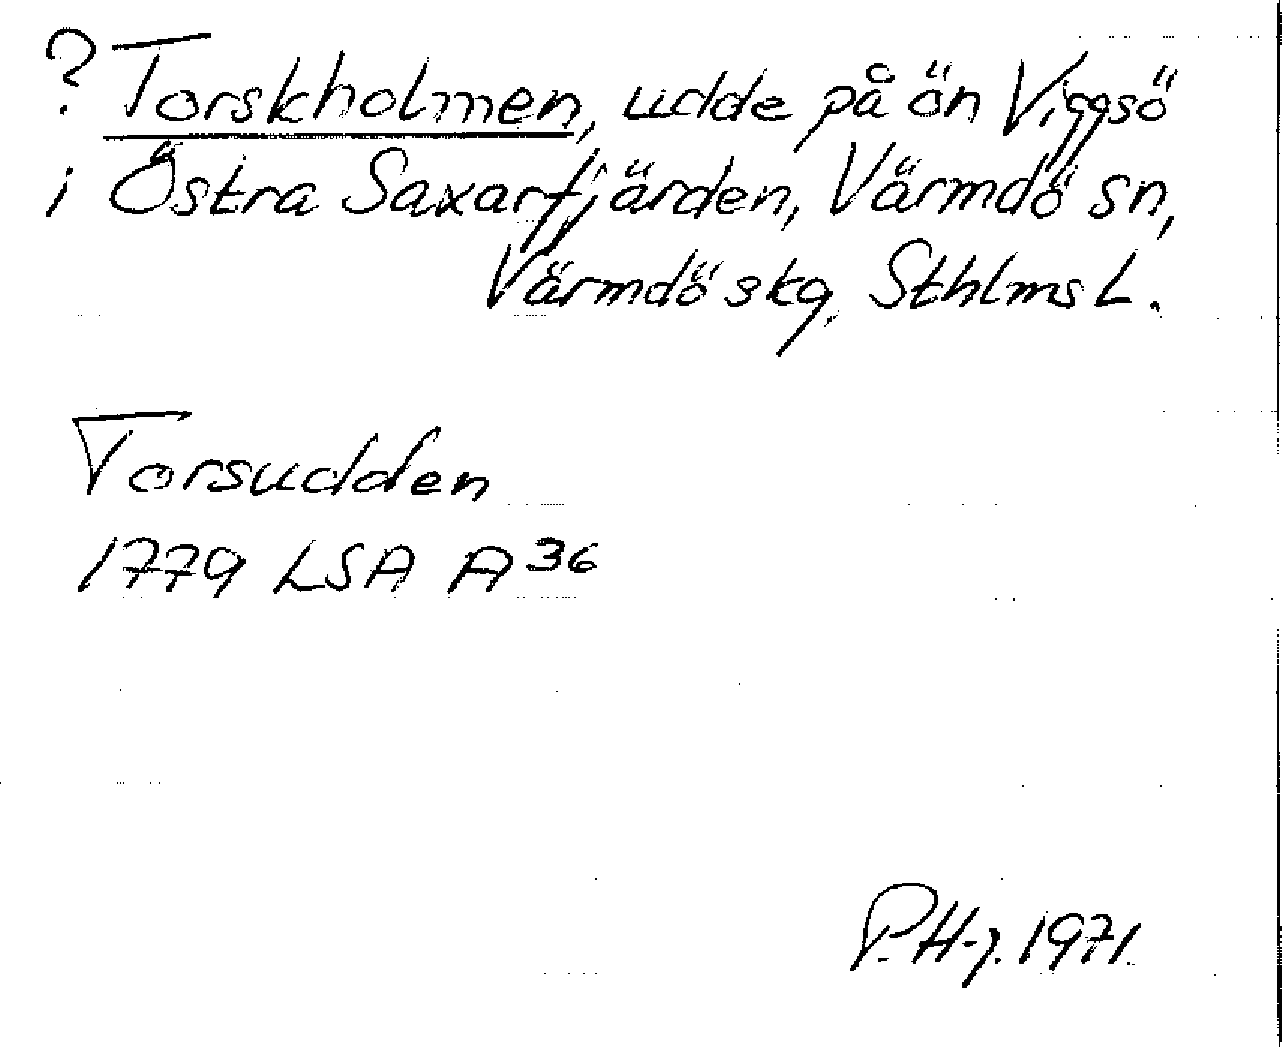 ? Torskholmen, udde på ön Viggsö
i Östra Saxarfjärden, Värmdö sn,
Värmdö skg, Sthlms L.
Torsudden
1779 LSA A 36
P.H-g. 1971.